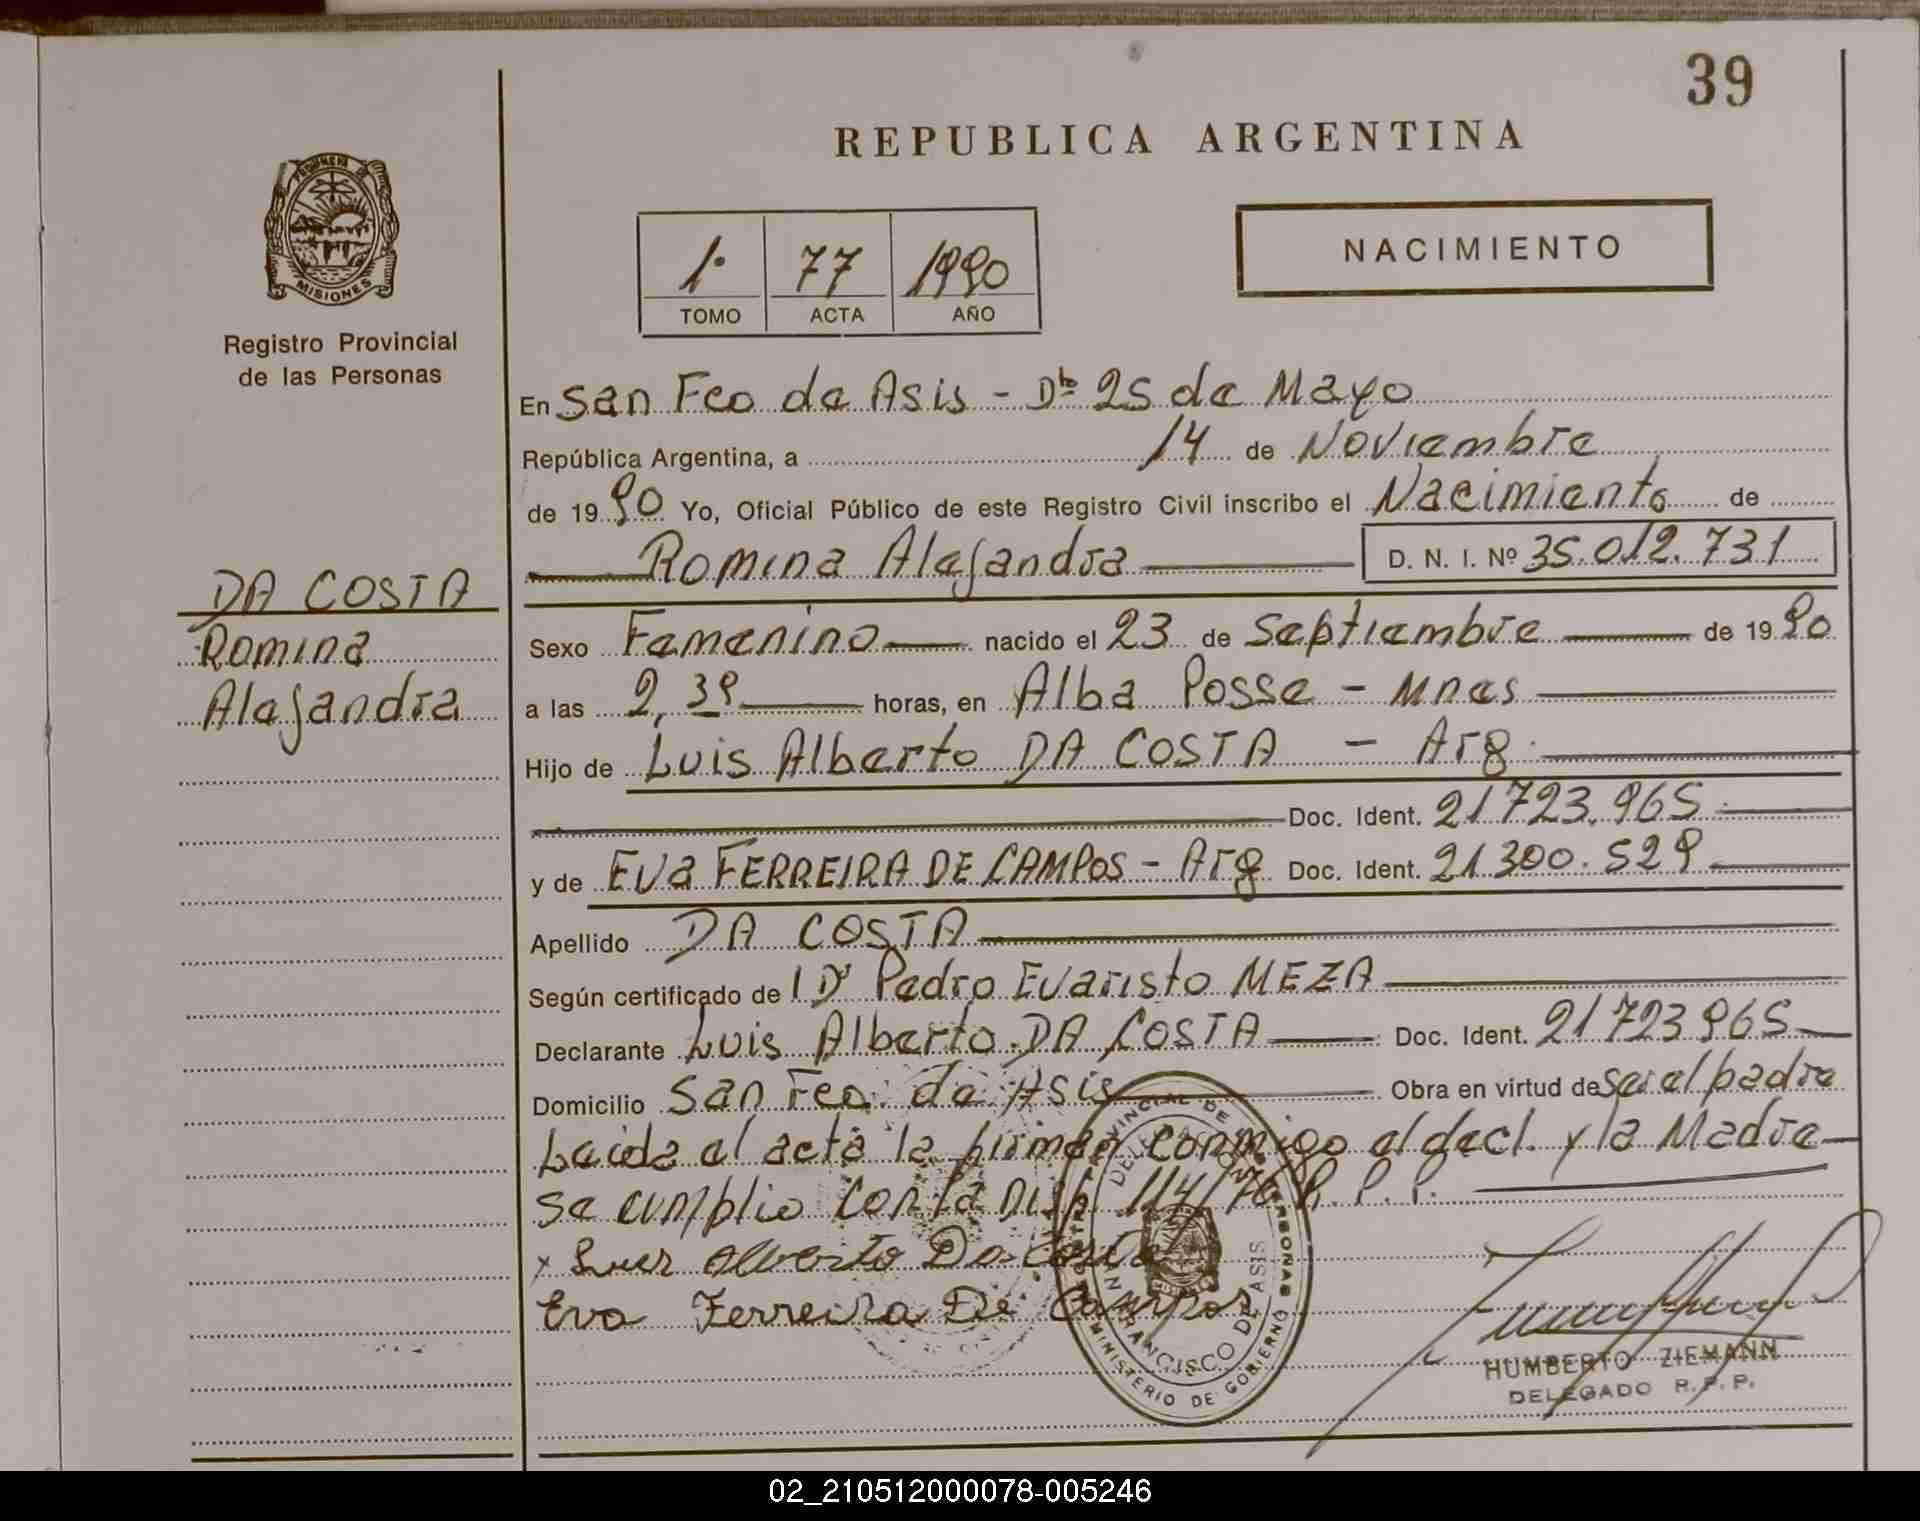 39
REPUBLICA ARGENTINA
PROVINCIA DE
MISIONES
Registro Provincial
de las Personas
1º 77 1990
TOMO ACTA AÑO
NACIMIENTO
En San Fco de Asis - Dto 25 de Mayo
República Argentina, a 14 de Noviembre
de 1990 Yo, Oficial Público de este Registro Civil inscribo el Nacimiento de
Romina Alejandra D. N. I. Nº 35.012.731
DA COSTA
Romina
Alejandra
Sexo Femenino nacido el 23 de Septiembre de 1990
a las 2,39 horas, en Alba Posse - Mnes
Hijo de Luis Alberto DA COSTA - Arg.
Doc. Ident. 21723.965
y de Eva FERREIRA DE CAMPOS - Arg Doc. Ident. 21.300.529
Apellido DA COSTA
Según certificado de l Dr Pedro Evaristo MEZA
Declarante Luis Alberto DA COSTA Doc. Ident. 21723965
Domicilio San Fco. de Asis Obra en virtud de Ser el padre
Leida el acta la firman conmigo el decl. y la Madre
Se cumplio con la Disp. 114/76 R.P.P.
x Luis Alberto Da Costa
Eva Ferreira De Campos
SAN FRANCISCO DE ASIS
MINISTERIO DE GOBIERNO
HUMBERTO ZIEMANN
DELEGADO R.P.P.
02_210512000078-005246